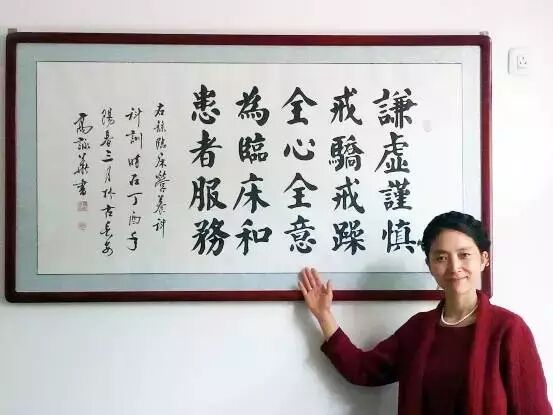 謙虛謹慎
戒驕戒躁
全心全意
為臨床和
患者服務
右錄臨床營養科
科訓 時在丁酉年
陽春三月於古長安
書